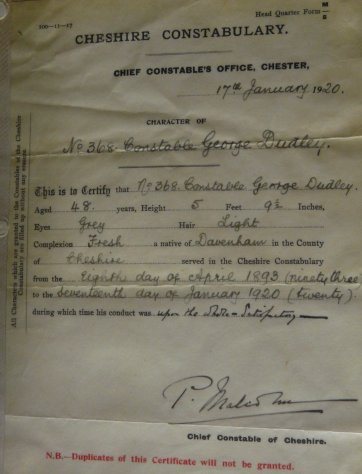 Head Quarter Form M/8
500—11—17
CHESHIRE CONSTABULARY.
CHIEF CONSTABLE'S OFFICE, CHESTER,
17th January 1920.
CHARACTER OF
No 368. Constable George Dudley.
This is to Certify that No 368. Constable George Dudley.
Aged 48 years, Height 5 Feet 9½ Inches,
Eyes Grey Hair Light
Complexion Fresh a native of Davenham in the County
of Cheshire served in the Cheshire Constabulary
from the Eighth day of April 1893 (ninety three
to the Seventeenth day of January 1920 (twenty).
during which time his conduct was upon the whole = Satisfactory
P. Malcolm
Chief Constable of Cheshire.
N.B.—Duplicates of this Certificate will not be granted.
All Characters which are granted to the Constables in the Cheshire
Constabulary are filled up without any erasure.